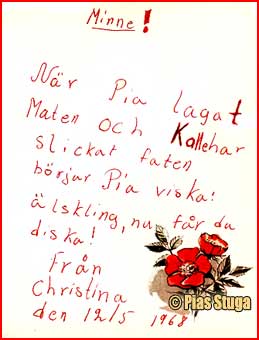 Minne!
När Pia lagat
Maten och Kallehar
slickat faten
börjar Pia viska!
älskling, nu får du
diska!
Från
Christina
den 12/5 1968
© Pias Stuga